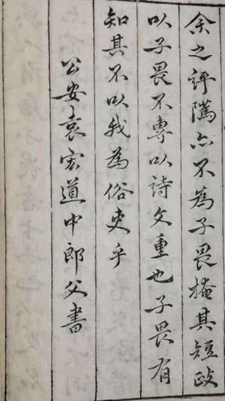 余之評隲亦不為子畏掩其短政
以子畏不專以詩文重也子畏有
知其不以我為俗吏乎
公安袁宏道中郎父書